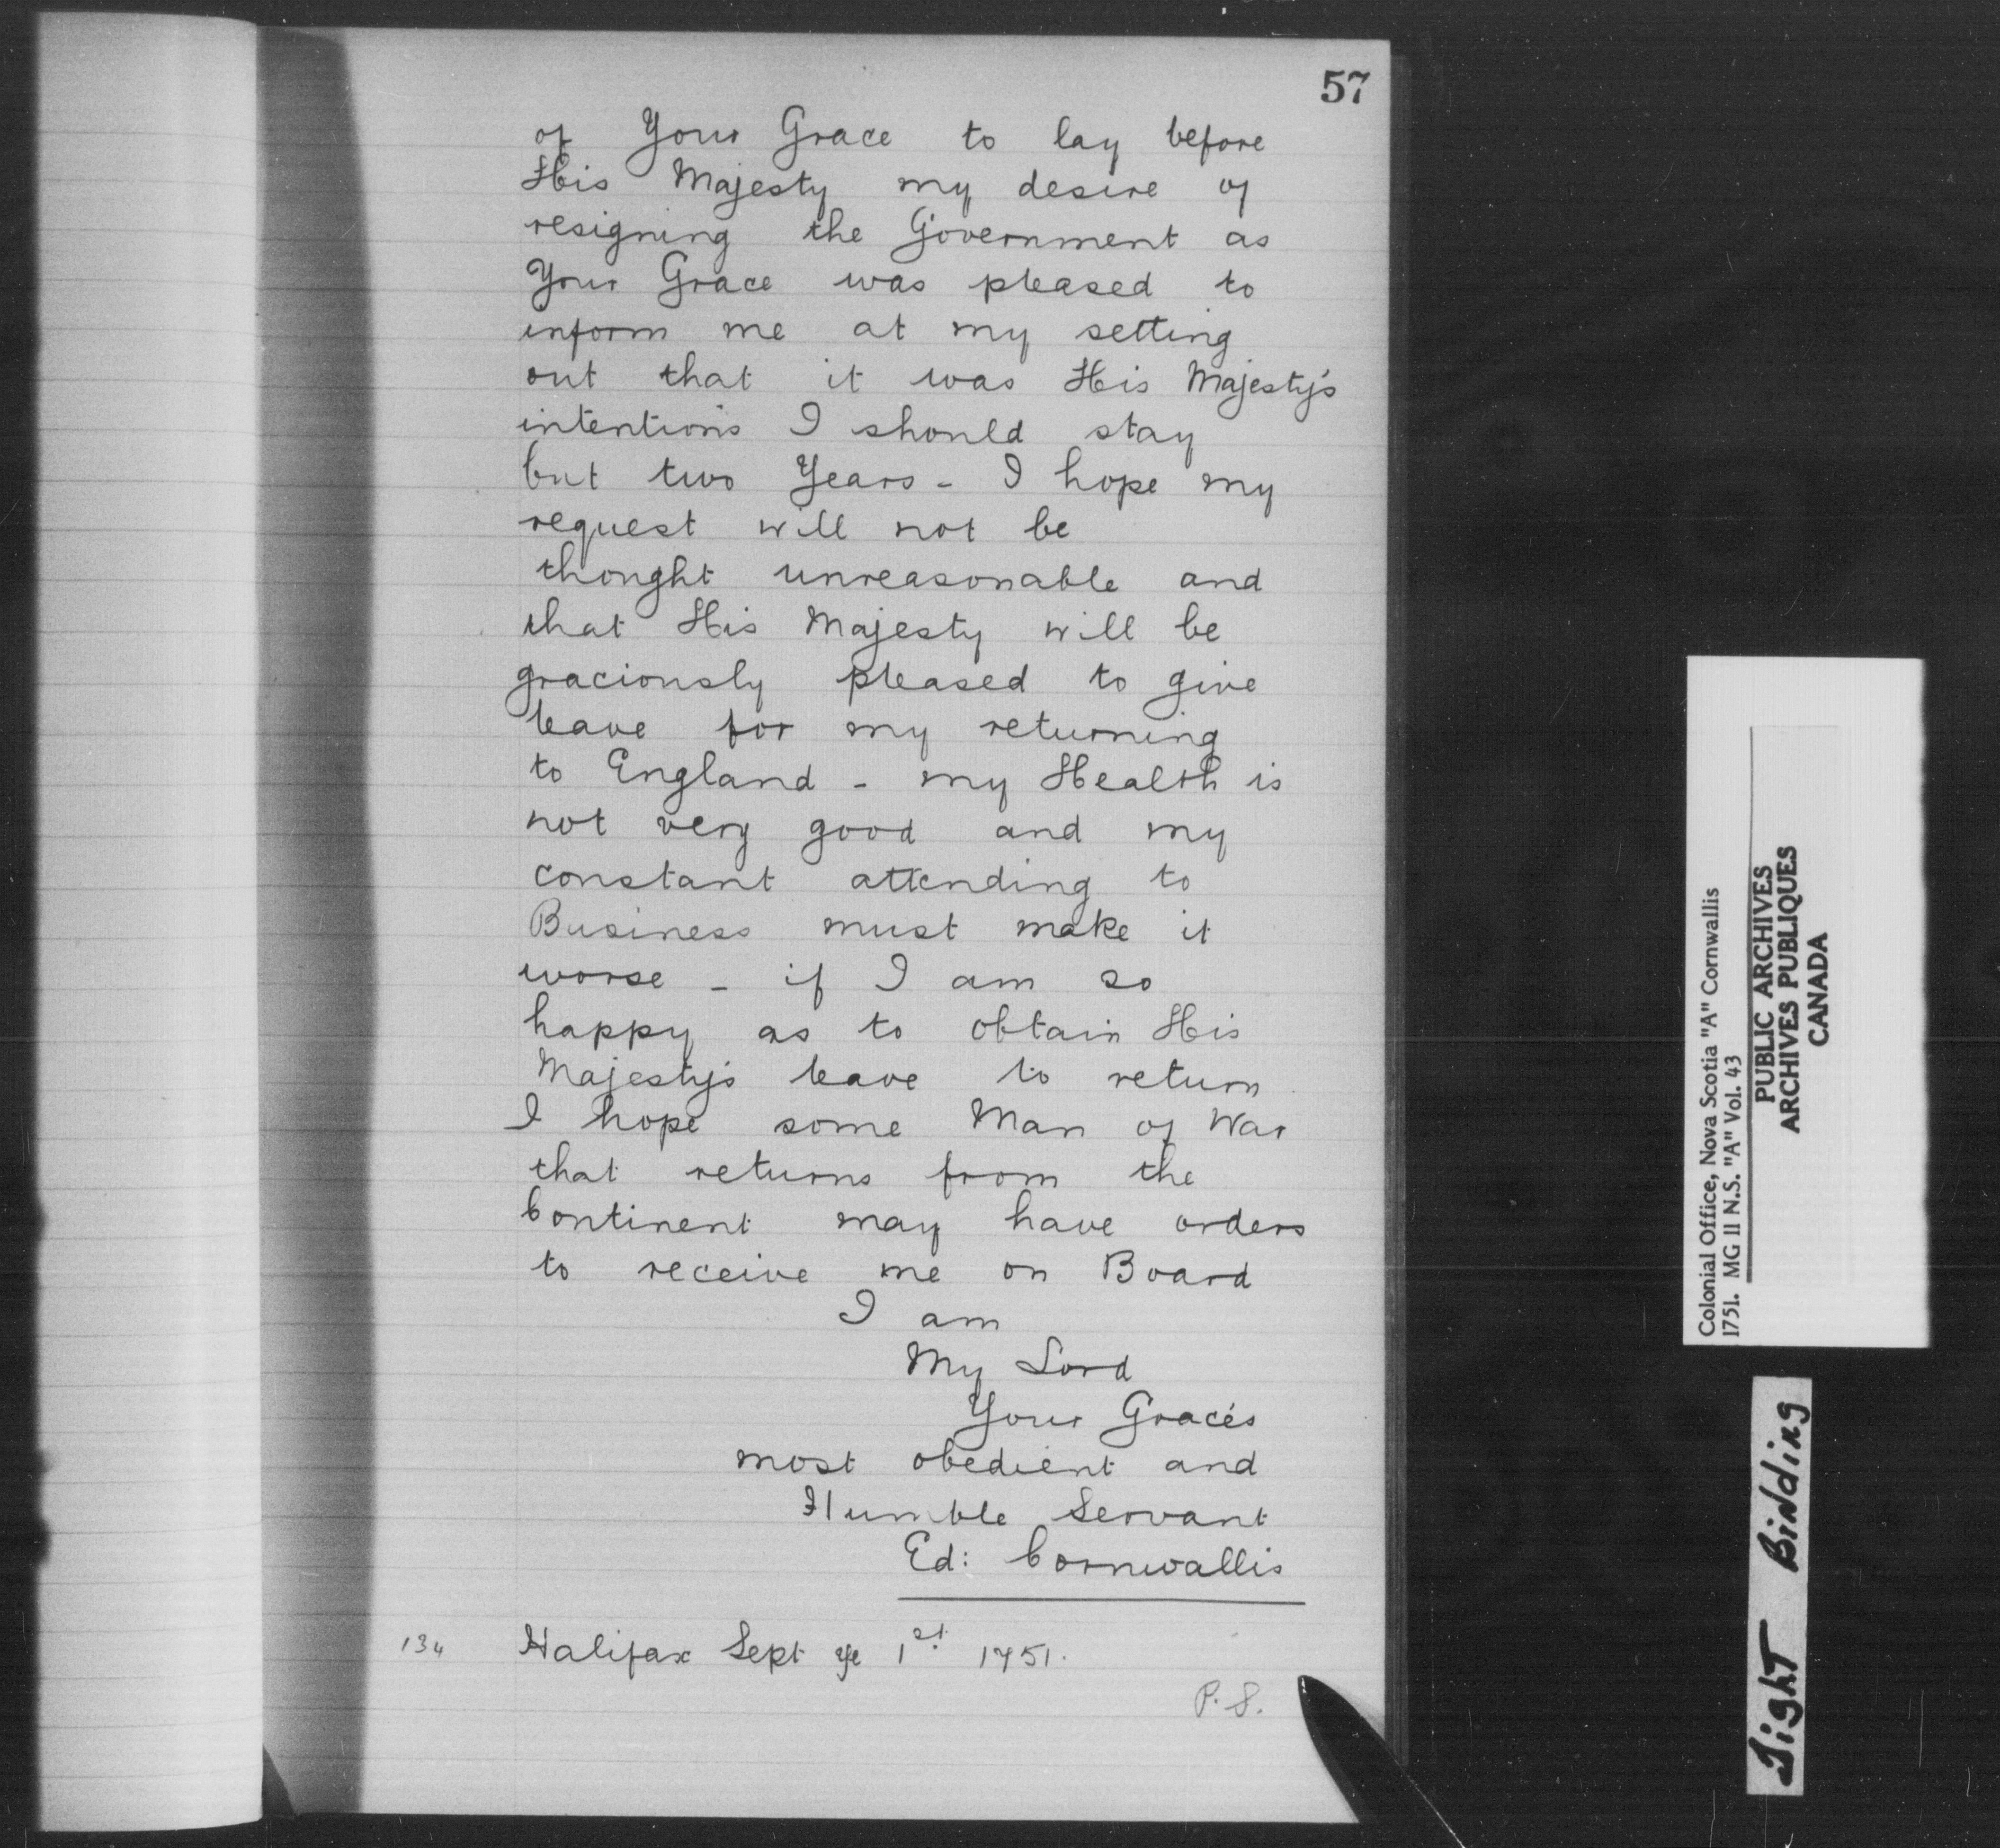 57
of Your Grace to lay before
His Majesty my desire of
resigning the Government as
Your Grace was pleased to
inform me at my setting
out that it was His Majesty's
intentions I should stay
but two Years - I hope my
request will not be
thought unreasonable and
that His Majesty will be
graciously pleased to give
leave for my returning
to England - my Health is
not very good and my
constant attending to
Business must make it
worse - if I am so
happy as to obtain His
Majesty's leave to return
I hope some Man of War
that returns from the
Continent may have orders
to receive me on Board
I am
My Lord
Your Grace's
most obedient and
Humble Servant
Ed: Cornwallis
134 Halifax Sept ye 1st 1751.
P.S.
Colonial Office, Nova Scotia "A" Cornwallis
1751. MG 11 N.S. "A" Vol. 43
PUBLIC ARCHIVES
ARCHIVES PUBLIQUES
CANADA
Tight Binding